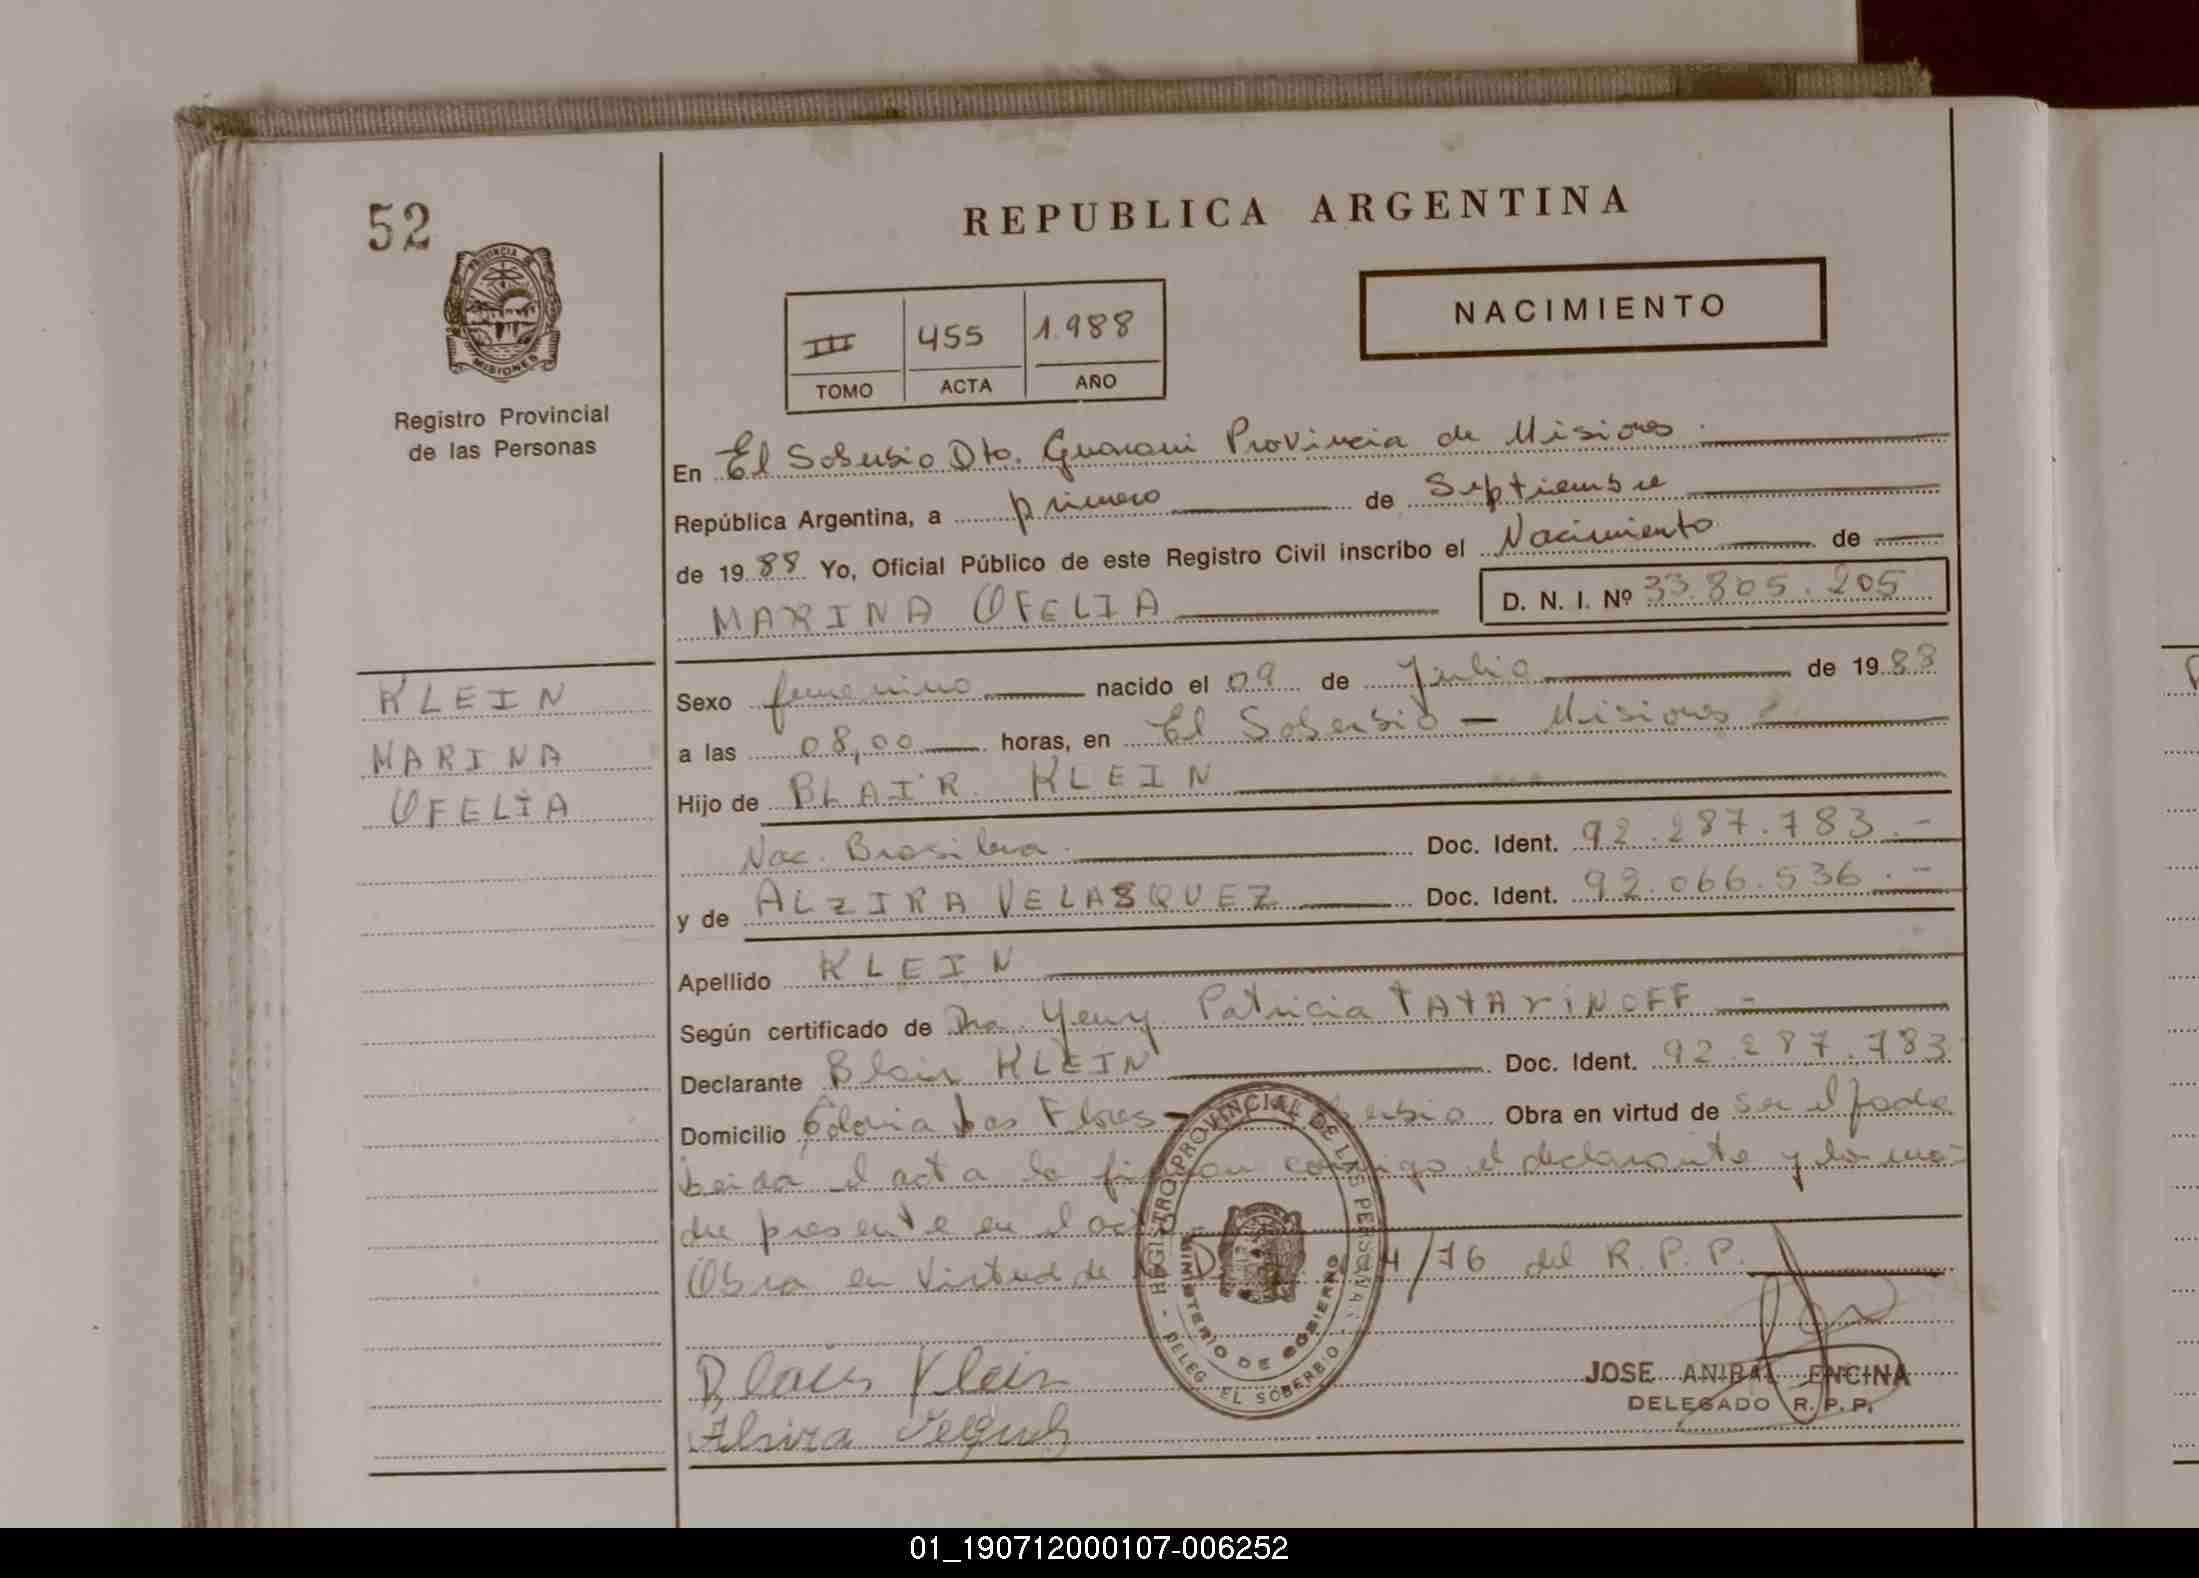 52
REPUBLICA ARGENTINA
PROVINCIA DE
MISIONES
Registro Provincial
de las Personas
III 455 1.988
TOMO ACTA AÑO
NACIMIENTO
En El Soberbio Dto. Guarani Provincia de Misiones.
República Argentina, a primero de Septiembre
de 1988 Yo, Oficial Público de este Registro Civil inscribo el Nacimiento de
MARINA OFELIA D. N. I. Nº 33.805.205
KLEIN
MARINA
OFELIA
Sexo femenino nacido el 09 de Julio de 1988
a las 08,00 horas, en El Soberbio - Misiones
Hijo de BLAIR KLEIN
Nac. Brasilera. Doc. Ident. 92.287.783.-
y de ALZIRA VELASQUEZ Doc. Ident. 92.066.536.-
Apellido KLEIN
Según certificado de Dra. Yeny Patricia TATARINOFF -
Declarante Blair KLEIN Doc. Ident. 92.287.783
Domicilio Colonia Las Flores - Obra en virtud de ser el padre
Leida el acta la firman conmigo el declarante y la ma-
dre presente en el
Obra en virtud de 4/76 del R.P.P.
REGISTRO PROVINCIAL DE LAS PERSONAS
MINISTERIO DE GOBIERNO
DELEG. EL SOBERBIO
Klein
JOSE ANIBAL ENCINA
DELEGADO R. P. P.
01_190712000107-006252